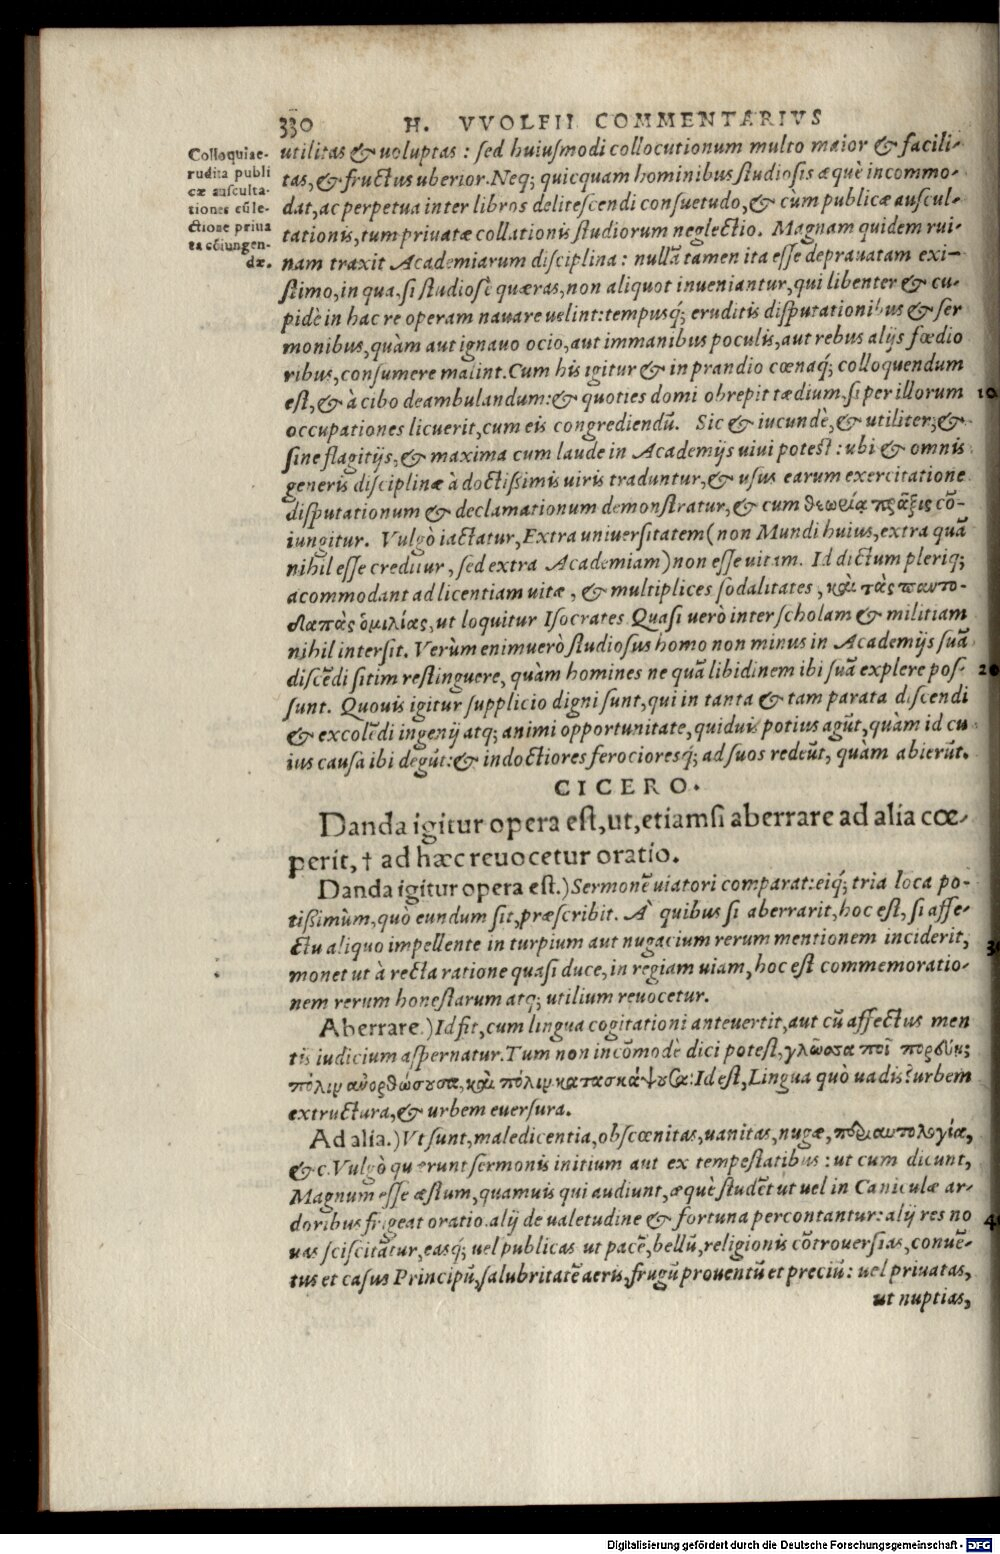 330 H. VVOLFII COMMENTARIVS
Colloquia e-
rudita publi
cæ ausculta-
tiones cũ le-
ctione priua
ta cõiungen-
dæ.
utilitas & uoluptas: sed huiusmodi collocutionum multo maior & facili-
tas, & fructus uberior. Neq; quicquam hominibus studiosis æquè incommo-
dat, ac perpetua inter libros delitescendi consuetudo, & cùm publicæ auscul-
tationis, tum priuatæ collationis studiorum neglectio. Magnam quidem rui-
nam traxit Academiarum disciplina: nullã tamen ita esse deprauatam exi-
stimo, in qua, si studiosè quæras, non aliquot inueniantur, qui libenter & cu-
pidè in hac re operam nauare uelint: tempusq́; eruditis disputationibus & ser
monibus, quàm aut ignauo ocio, aut immanibus poculis, aut rebus alijs fœdio
ribus, consumere malint. Cum his igitur & in prandio cœnaq́; colloquendum
est, & à cibo deambulandum: & quoties domi obrepit tædium, si per illorum 10
occupationes licuerit, cum eis congrediendũ. Sic & iucundè, & utiliter, &
sine flagitijs, & maxima cum laude in Academijs uiui potest: ubi & omnis
generis disciplinæ à doctißimis uiris traduntur, & usus earum exercitatione
disputationum & declamationum demonstratur, & cum θεωρίᾳ πρᾶξις cõ-
iungitur. Vulgò iactatur, Extra uniuersitatem (non Mundi huius, extra quã
nihil esse creditur, sed extra Academiam) non esse uitam. Id dictum pleriq;
acommodant ad licentiam uitæ, & multiplices sodalitates, καὶ τὰς παντο-
δαπὰς ὁμιλίας, ut loquitur Isocrates. Quasi uerò inter scholam & militiam
nihil intersit. Verùm enimuerò studiosus homo non minus in Academijs suã
discẽdi sitim restinguere, quàm homines nequã libidinem ibi suã explere pos- 20
sunt. Quouis igitur supplicio digni sunt, qui in tanta & tam parata discendi
& excolẽdi ingenij atq; animi opportunitate, quiduis potius agũt, quàm id cu
ius causa ibi degũt: & indoctiores ferocioresq́; ad suos redeũt, quàm abierũt.
CICERO.
Danda igitur opera est, ut, etiamsi aberrare ad alia cœ-
perit, † ad hæc reuocetur oratio.
Danda igitur opera est.) Sermonẽ uiatori comparat: eiq́; tria loca po-
tißimùm, quò eundum sit, præscribit. À quibus si aberrarit, hoc est, si affe-
ctu aliquo impellente in turpium aut nugacium rerum mentionem inciderit, 30
monet ut à recta ratione quasi duce, in regiam uiam, hoc est commemoratio-
nem rerum honestarum atq; utilium reuocetur.
Aberrare.) Id fit, cum lingua cogitationi anteuertit, aut cũ affectus men
tis iudicium aspernatur. Tum non incõmodè dici potest, γλῶσσα ποῖ πορεύῃ;
πόλιν ἀνορθώσουσα, καὶ πόλιν κατασκάψουσα: Id est, Lingua quò uadis? urbem
extructura, & urbem euersura.
Ad alia.) Vt sunt, maledicentia, obscœnitas, uanitas, nugæ, περιαυτολογία,
&c. Vulgò quærunt sermonis initium aut ex tempestatibus: ut cum dicunt,
Magnum esse æstum, quamuis qui audiunt, æquè studẽt ut uel in Caniculæ ar-
doribus frigeat oratio. alij de ualetudine & fortuna percontantur: alij res no 40
uas sciscitãtur, easq́; uel publicas ut pacẽ, bellũ, religionis cõtrouersias, conuẽ-
tus et casus Principũ, salubritatẽ aeris, frugũ prouentũ et preciũ: uel priuatas,
ut nuptias,
Digitalisierung gefördert durch die Deutsche Forschungsgemeinschaft - DFG